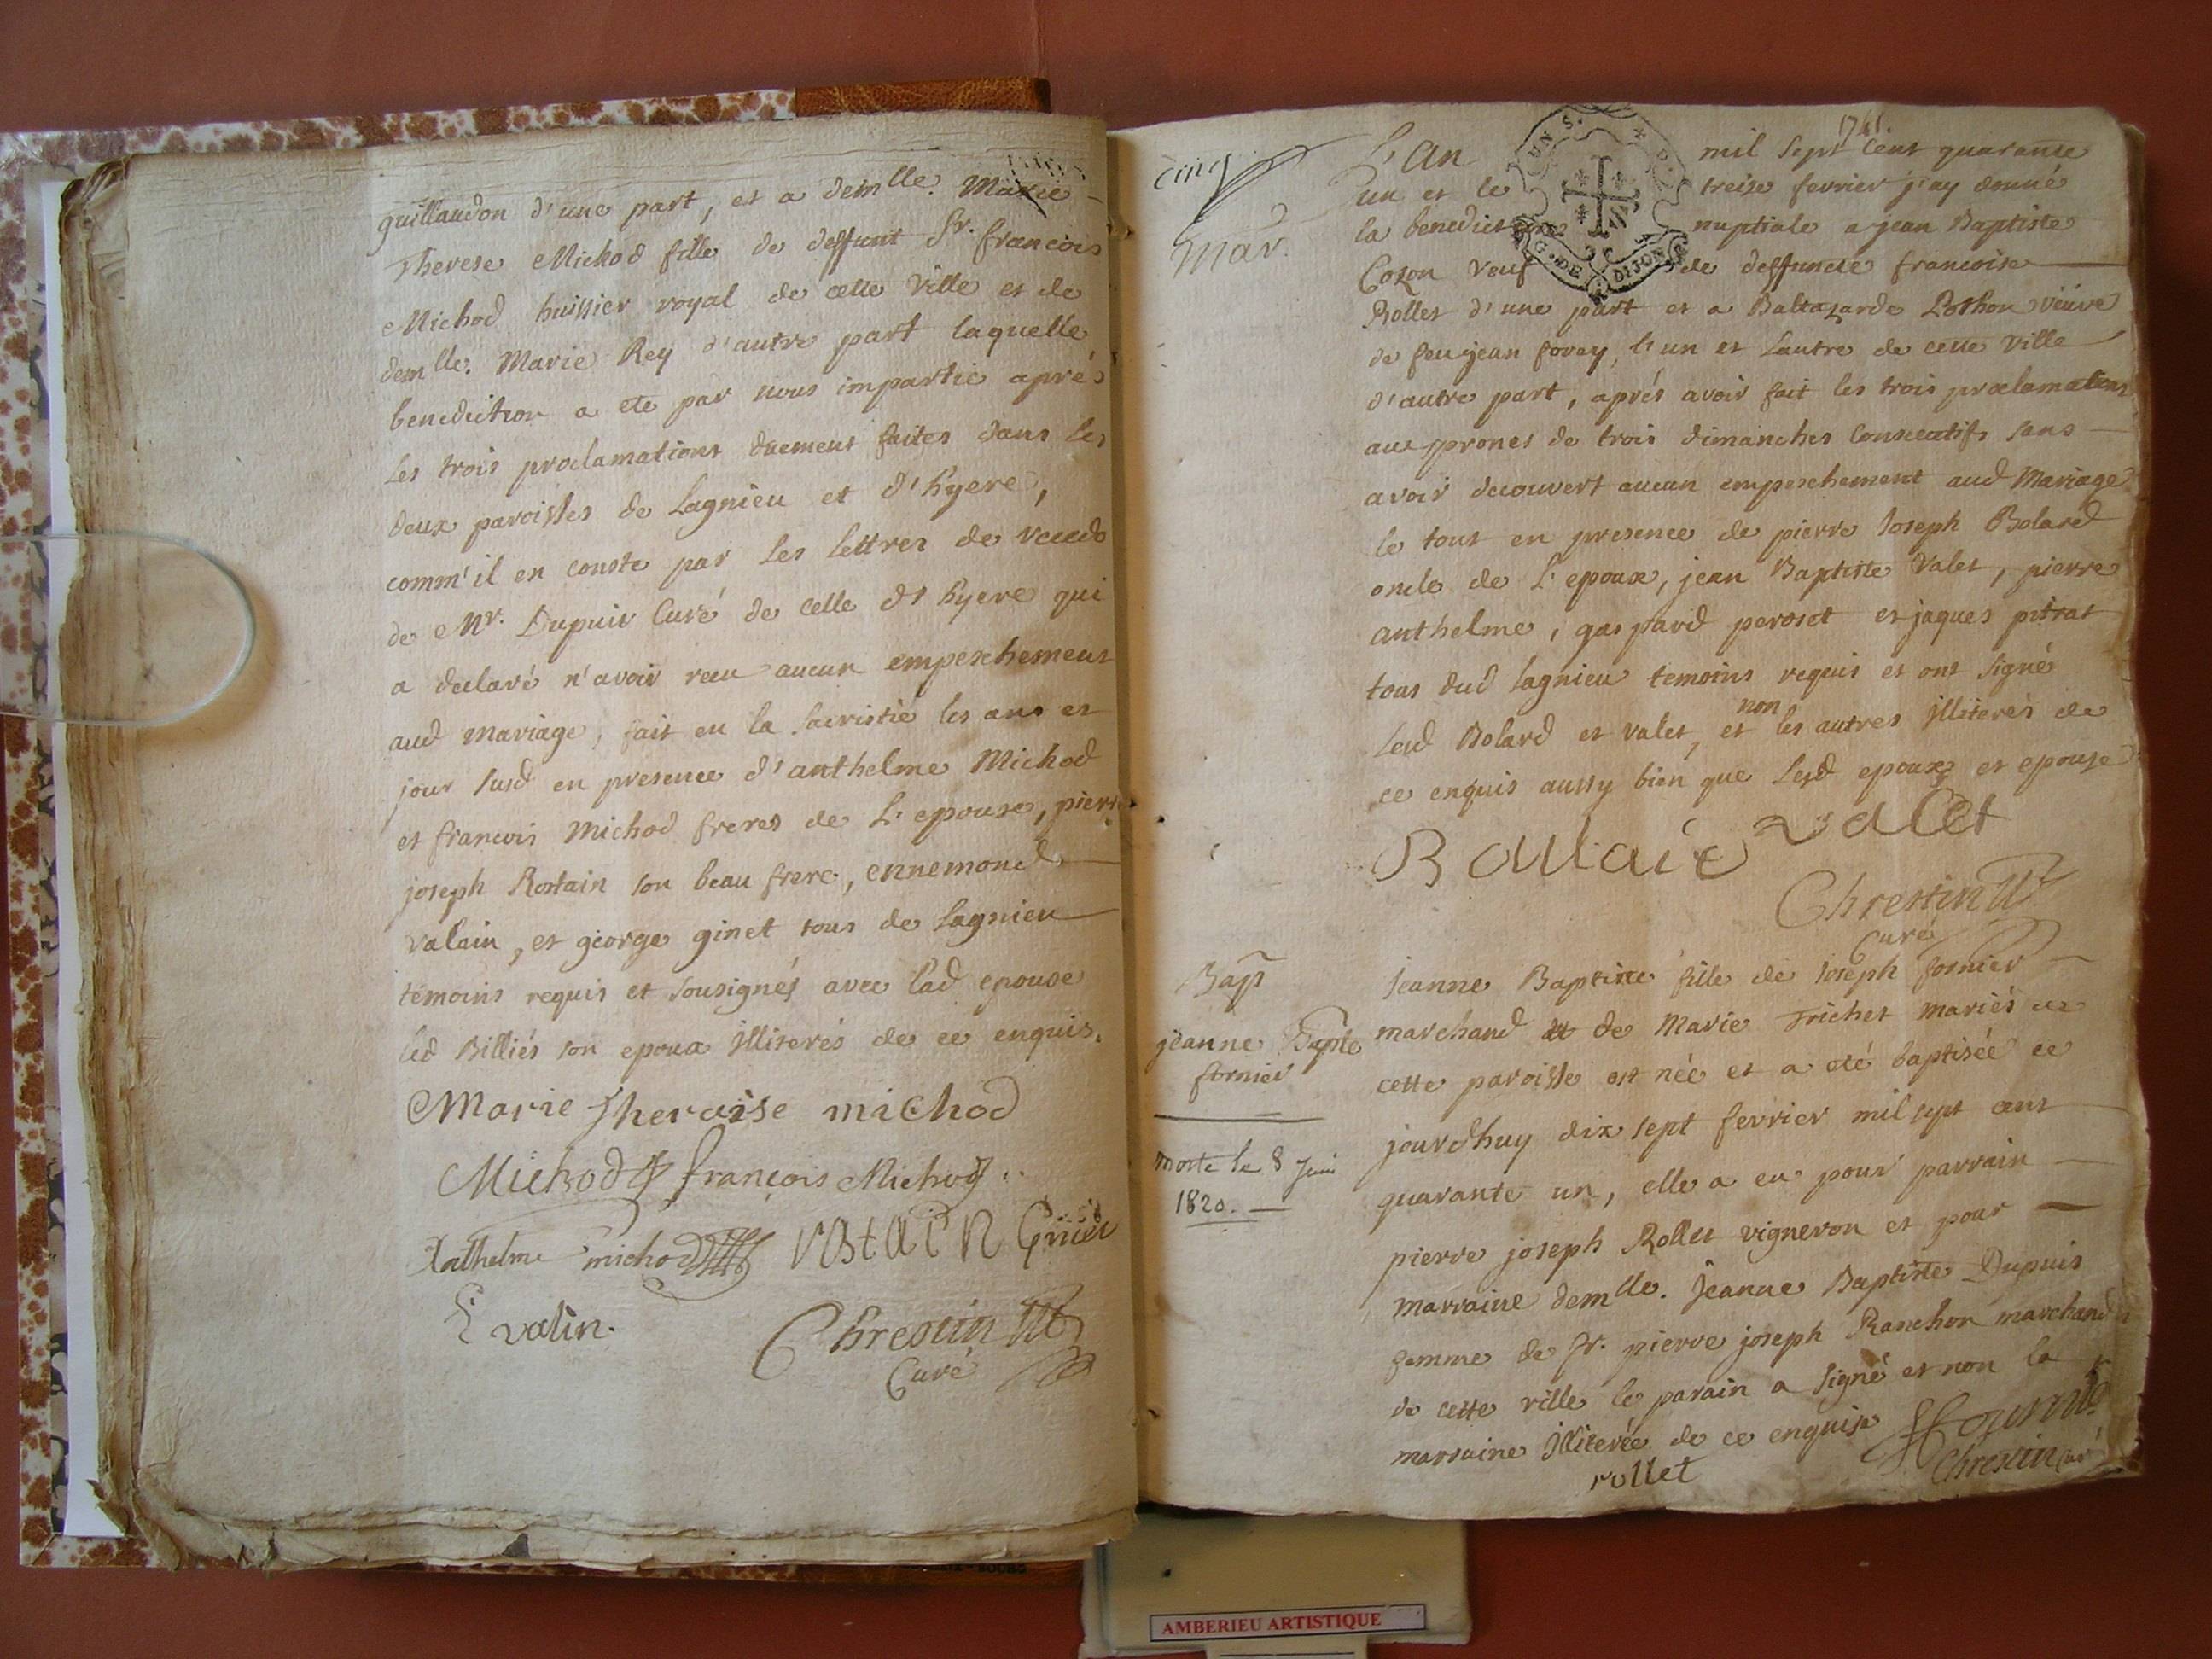 guillaudon d'une part, et a demlle. Marie
Therese Michod fille de deffunt Sr. francois
Michod huissier royal de cette Ville et de
demlle. Marie Rey d'autre part laquelle
benediction a ete par nous impartie aprés
les trois proclamations duement faites dans les
deux paroisses de Lagnieu et d'hyere,
comm'il en conste par les lettres de recedo
de Mr. Dupuir Curé de celle d'hyere qui
a declaré n'avoir recu aucun empeschement
aud mariage, fait en la sacristie les ans et
jour susd en presence d'anthelme Michod
et francois Michod freres de L'epouse, pierre
joseph Rostain son beau frere, ennemond
valain, et george ginet tous de Lagnieu
temoins requis et sousignés avec lad epouse
led Billiés son epoux illiterés de ce enquis.
Marie Theraise michod
Michod françois Michod
Anthelme michod rostain Ginet
E valin.
Chrestin
Curé
cinq
Mar.
1741
L'an mil sept cent quarante
un et le treise fevrier j'ay donné
la benediction nuptiale a jean Baptiste
Cozon veuf de deffuncte francoise
Rollet d'une part et a Baltazarde Pothon veuve
de feu jean fovay, l'un et lautre de cette ville
d'autre part, aprés avoir fait les trois proclamations
aux prones de trois dimanches consecutifs sans
avoir decouvert aucun empeschement aud Mariage
le tout en presence de pierre Joseph Bolard
oncle de L'epoux, jean Baptiste Valet, pierre
anthelme, gaspard peroset et jaques pittat
tous dud lagnieu temoins requis et ont signé
lesd Bolard et valet, et non les autres illiterés de
ce enquis aussy bien que lesd epoux et epouse
Boulaie vallet
Chrestin
Curé
G. DE DIJON
Bap
jeanne Bapte
fornier
morte le 8 Juin
1820.
Jeanne Baptiste fille de Joseph fornier
marchand et de Marie Trichet mariés de
cette paroisse est née et a eté baptisée ce
jourdhuy dix sept fevrier mil sept cent
quarante un, elle a eu pour parrain
pierre joseph Rollet vigneron et pour
marraine demlle. Jeanne Baptiste Dupuis
femme de Sr. pierre joseph Ranchon marchand
de cette ville le parain a signé et non la
marraine illiterée de ce enquise
rollet
Chrestin curé
AMBERIEU ARTISTIQUE